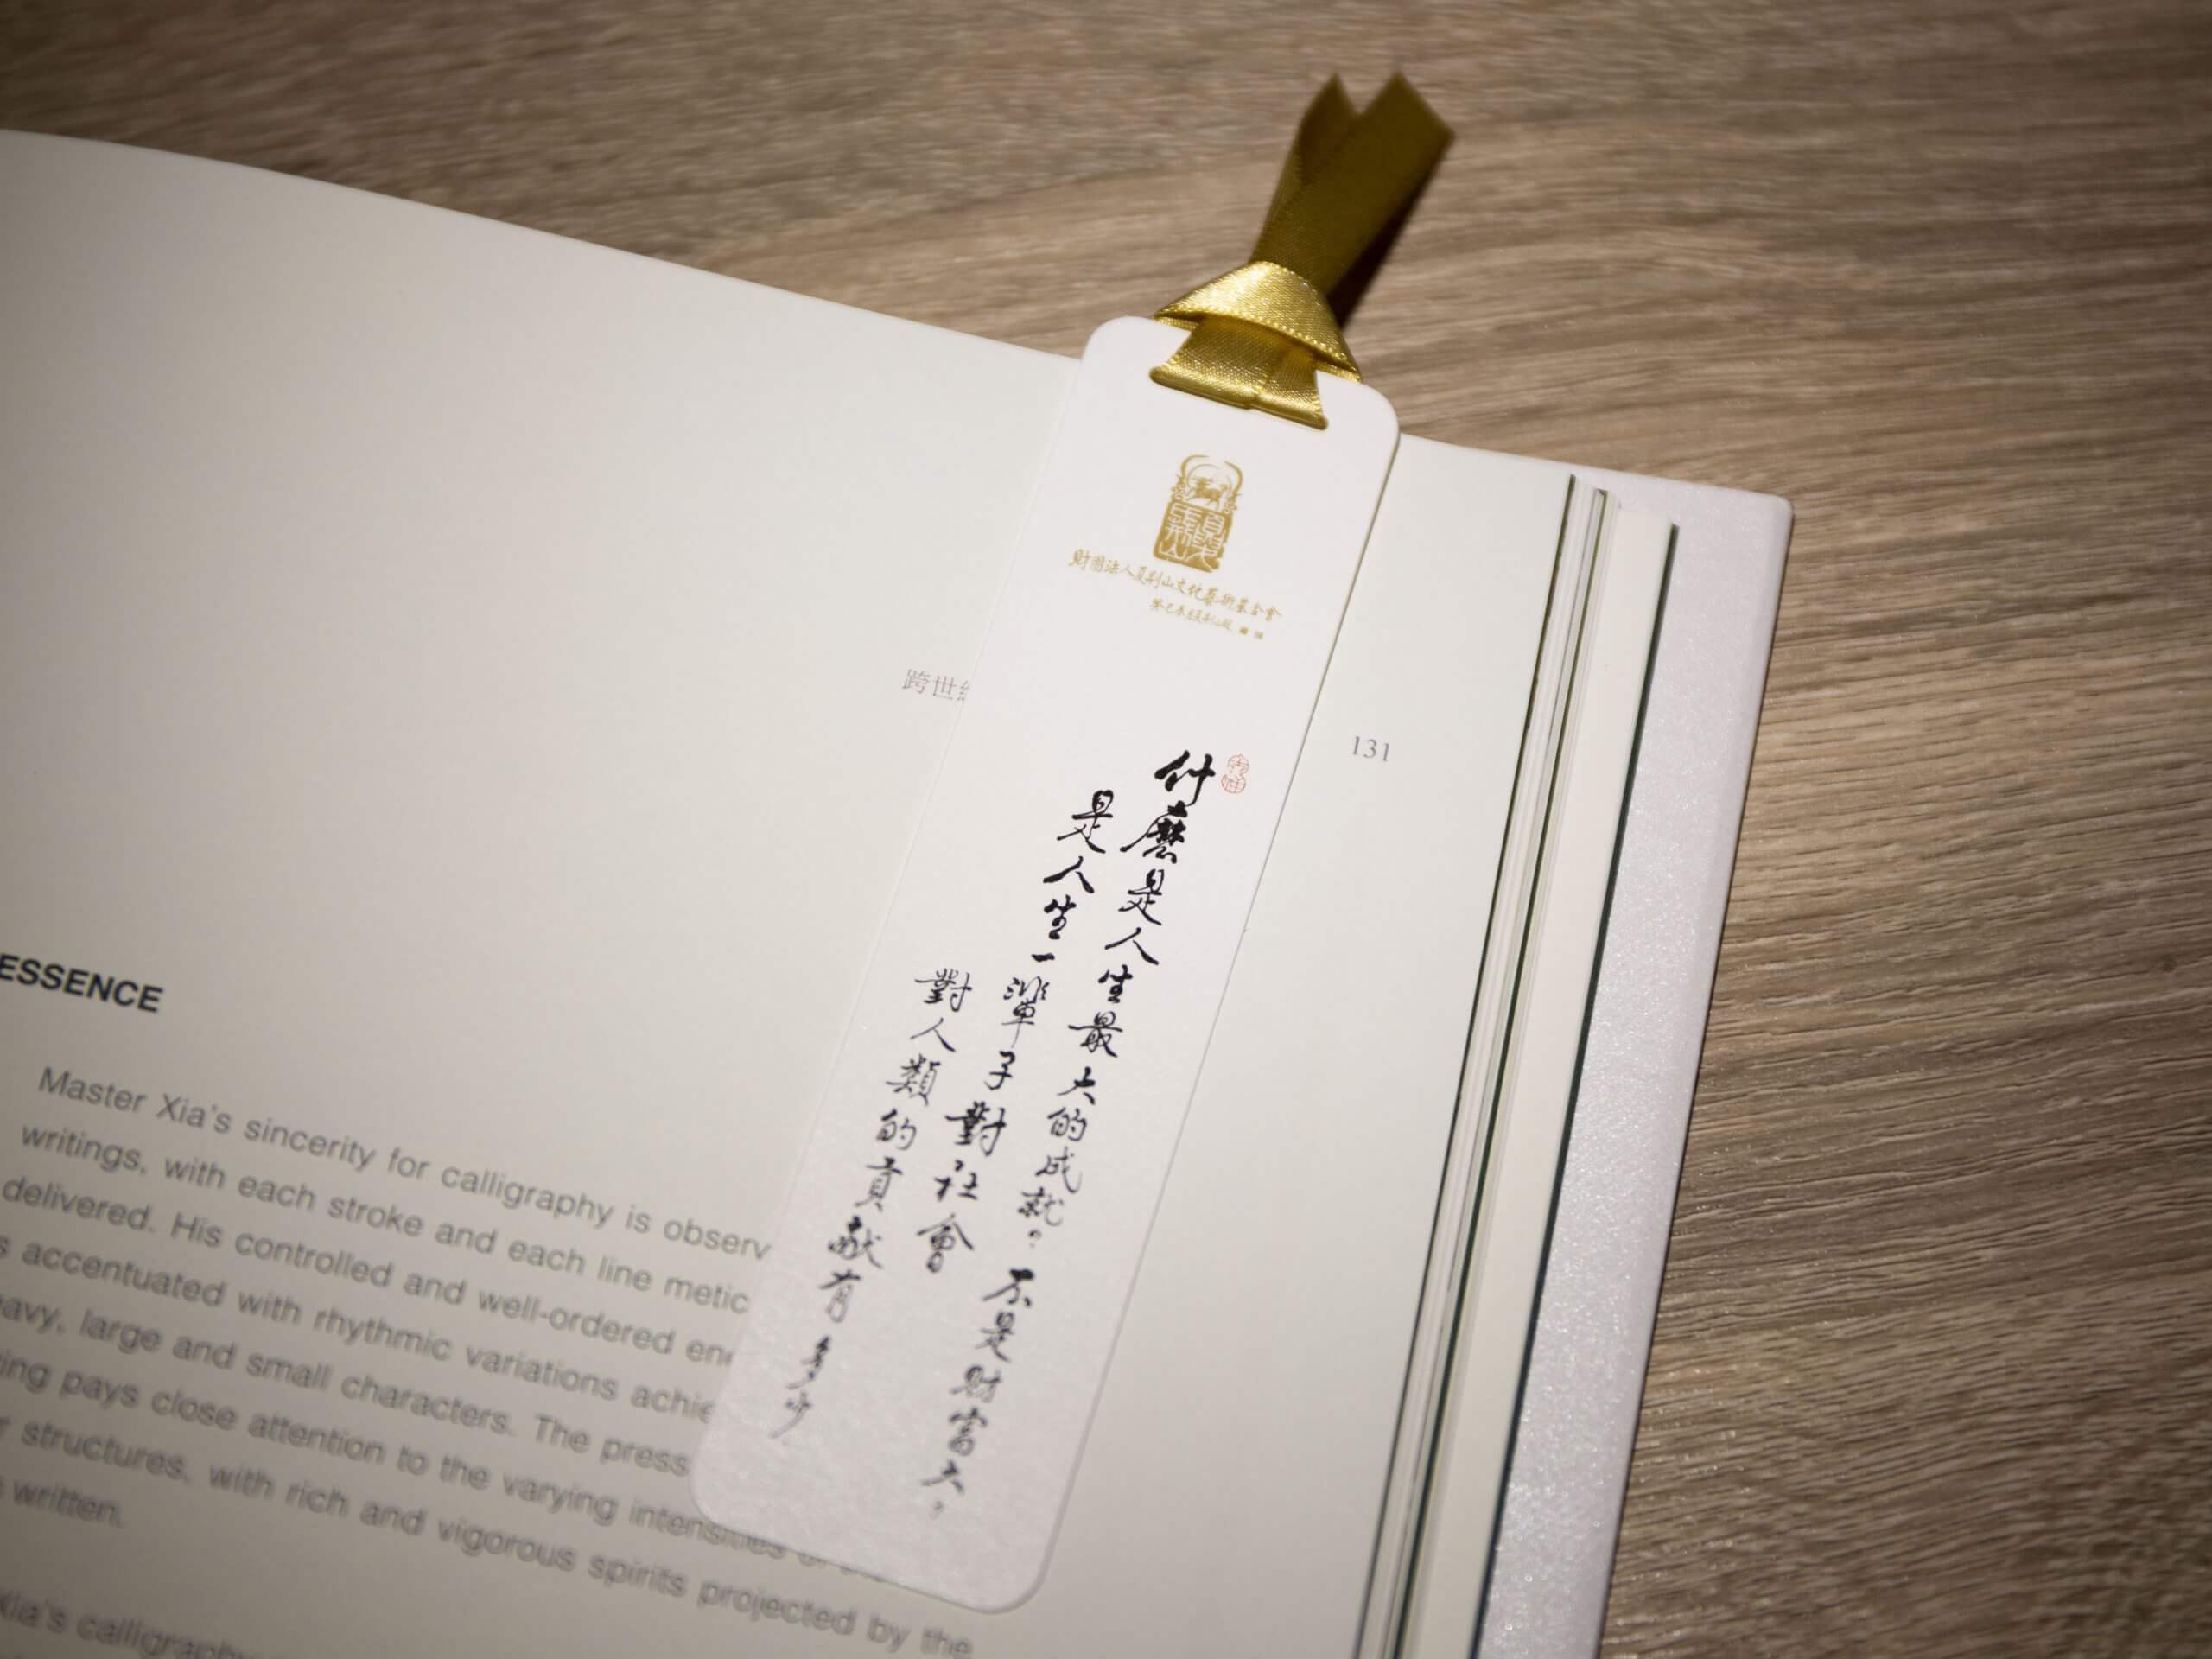 財團法人夏荊山文化藝術基金會
什麼是人生最大的成就？不是財富大，
是人生一輩子對社會
對人類的貢献有多少
跨世
131
ESSENCE
Master Xia's sincerity for calligraphy is observ
writings, with each stroke and each line metic
delivered. His controlled and well-ordered en
s accentuated with rhythmic variations achie
eavy, large and small characters. The press
ing pays close attention to the varying intensities
r structures, with rich and vigorous spirits projected by the
written.
Xia's calligraphy